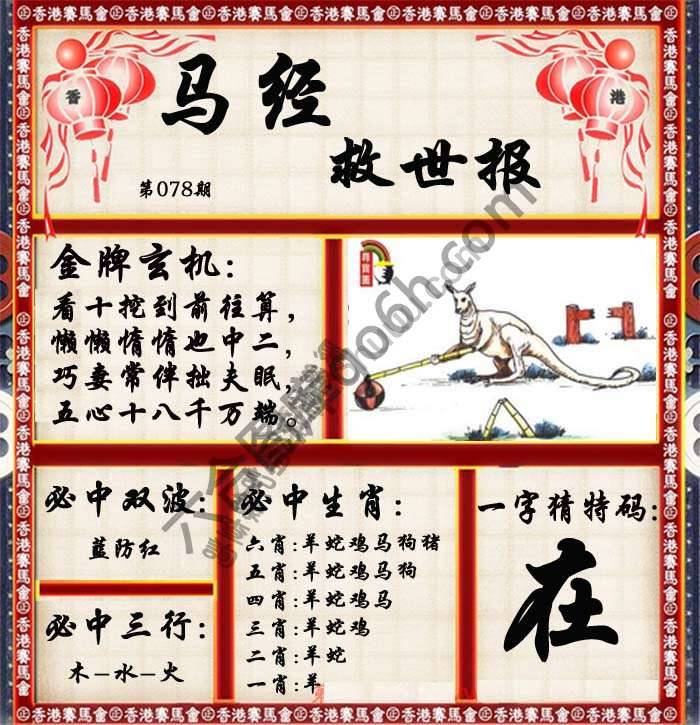 香港賽馬會
香
港
马经
救世报
第078期
金牌玄机：
看十挖到前往算，
懒懒惰惰也中二，
巧妻常伴拙夫眠，
五心十八千万端。
尋寶圖
必中双波：
蓝防红
必中三行：
木-水-火
必中生肖：
六肖：羊蛇鸡马狗猪
五肖：羊蛇鸡马狗
四肖：羊蛇鸡马
三肖：羊蛇鸡
二肖：羊蛇
一肖：羊
一字猜特码：
在